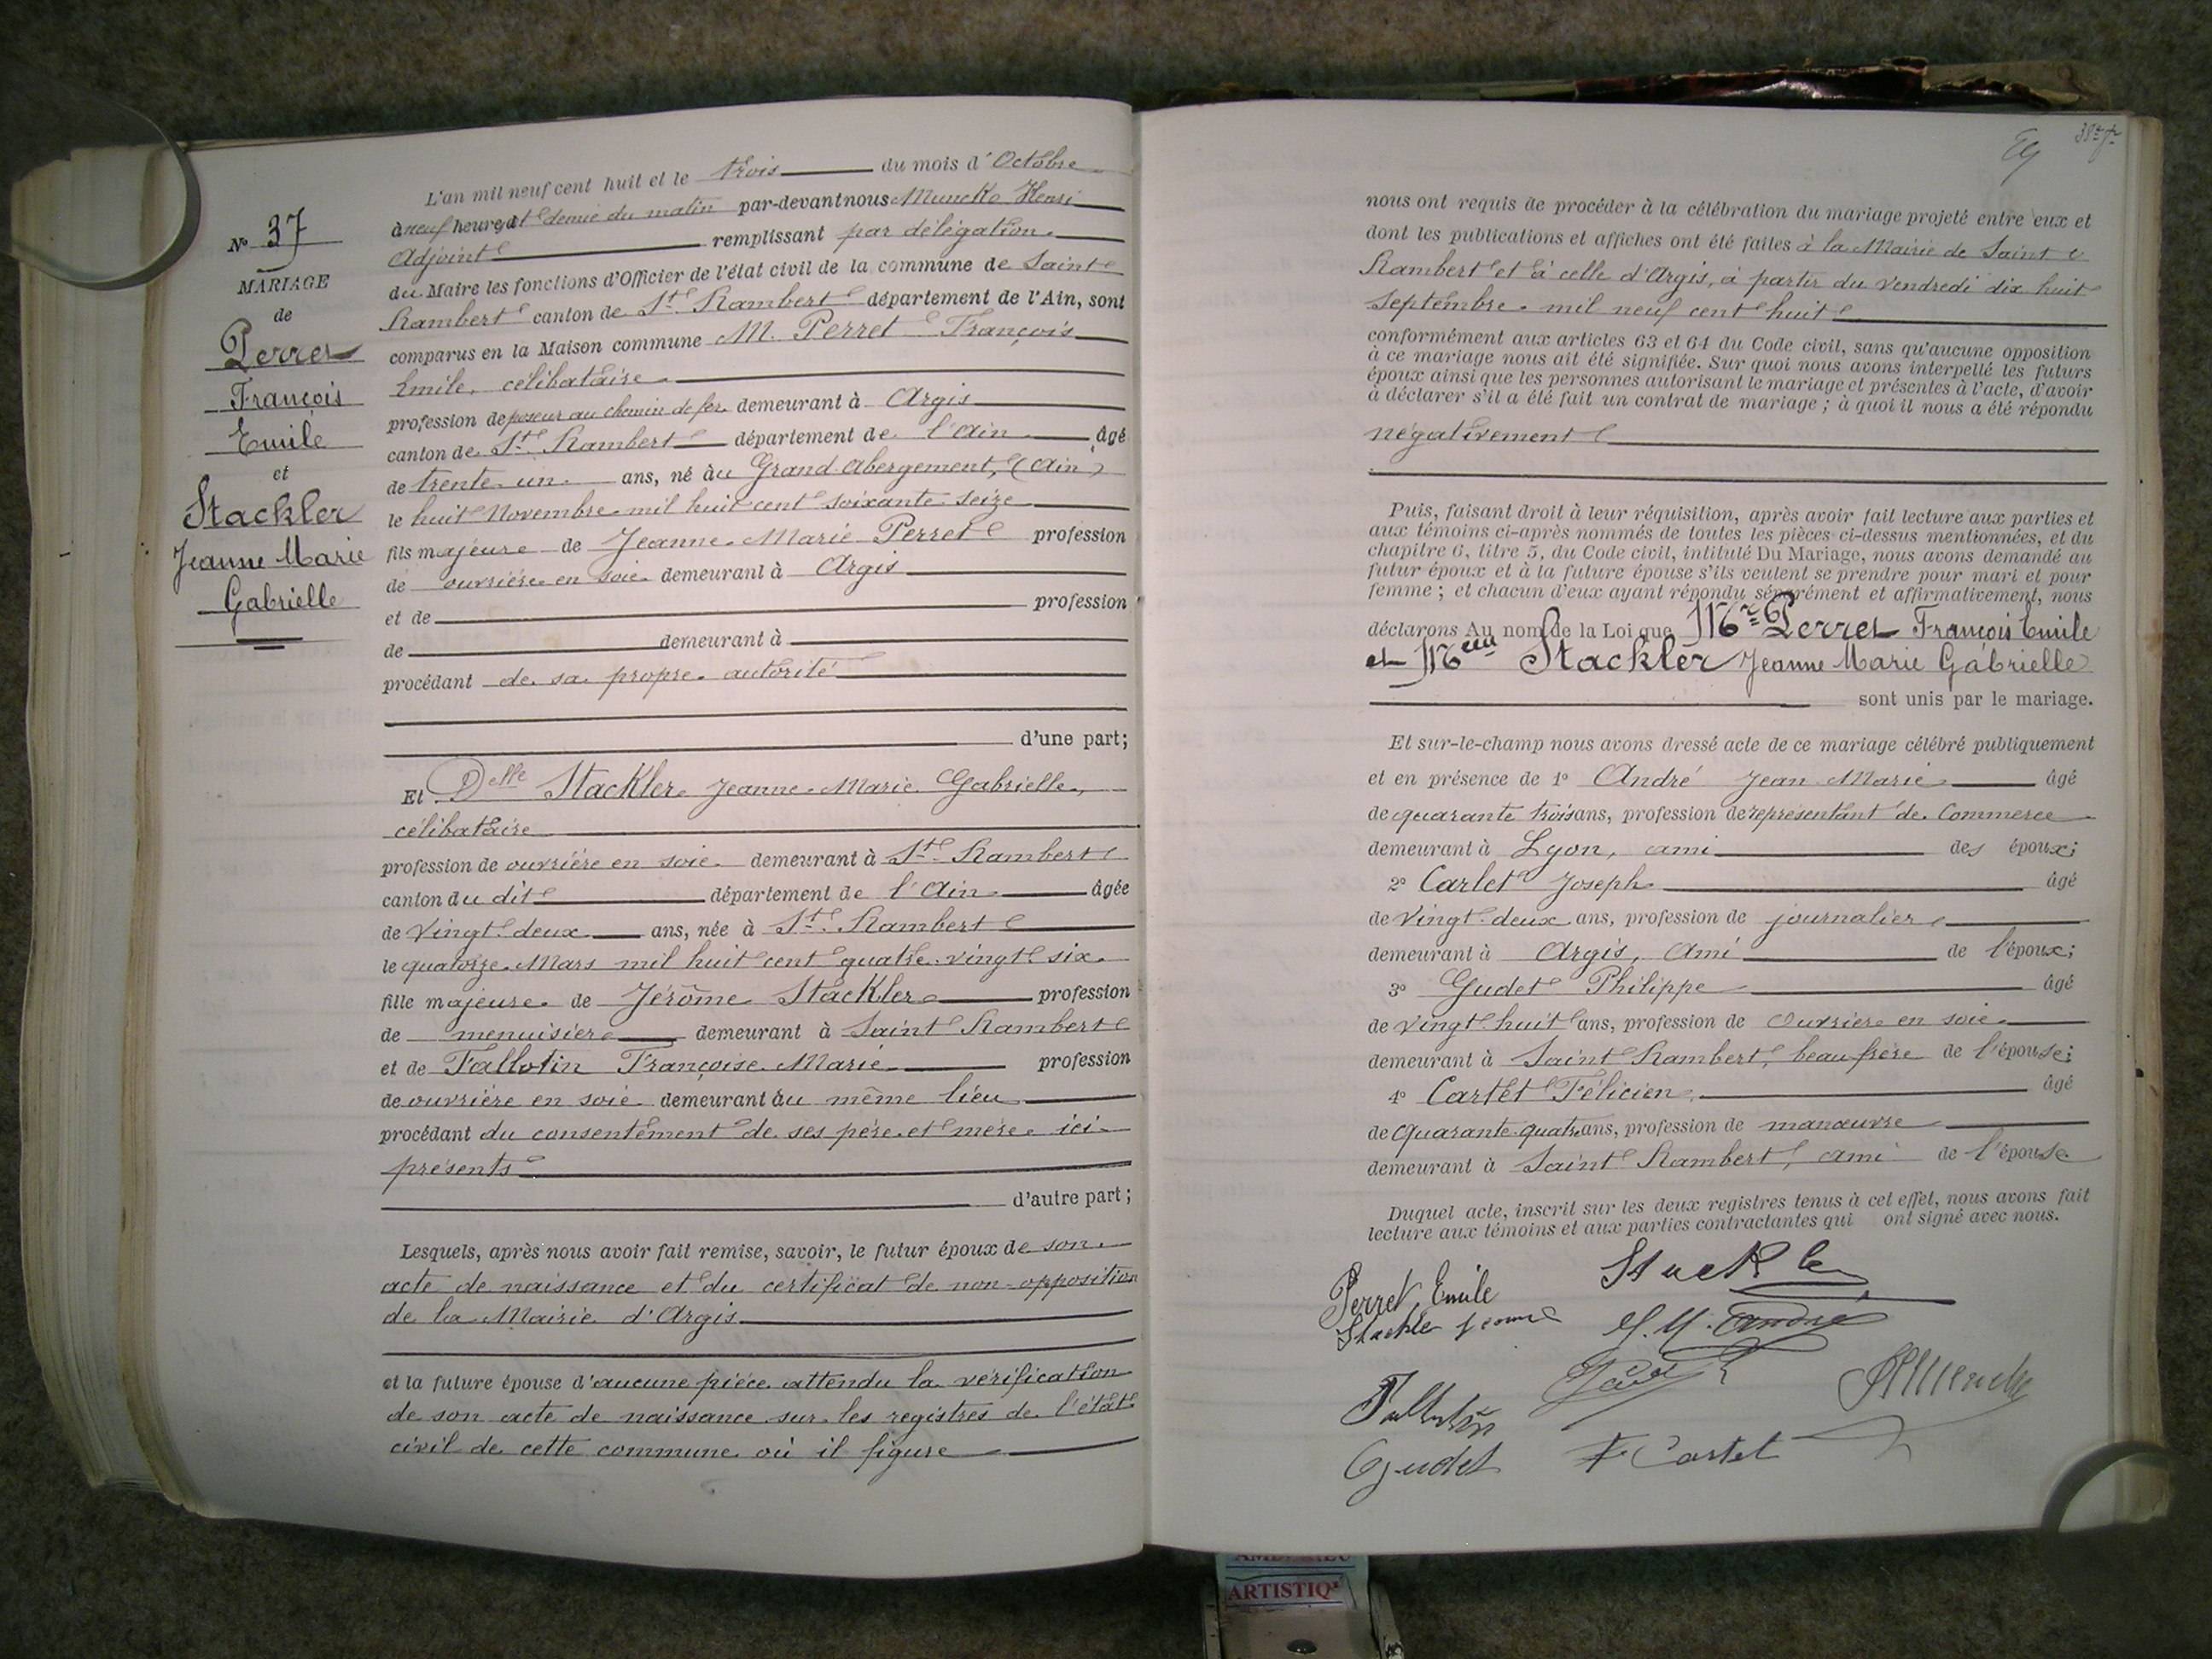 N° 37
MARIAGE
de
Perret
François
Emile
et
Stackler
Jeanne Marie
Gabrielle
L'an mil neuf cent huit et le trois du mois d'Octobre
à neuf heures et demie du matin par-devant nous Muncko Henri
Adjoint remplissant par délégation
du Maire les fonctions d'Officier de l'état civil de la commune de Saint
Rambert canton de St Rambert département de l'Ain, sont
comparus en la Maison commune M. Perret François
Emile, célibataire
profession de poseur au chemin de fer demeurant à Argis
canton de St Rambert département de l'Ain âgé
de trente un ans, né au Grand Abergement, (Ain)
le huit Novembre mil huit cent soixante seize
fils majeur de Jeanne Marie Perret profession
de ouvrière en soie demeurant à Argis
et de profession
de demeurant à
procédant de sa propre autorité
d'une part;
Et Delle Stackler Jeanne Marie Gabrielle,
célibataire
profession de ouvrière en soie demeurant à St Rambert
canton du dit département de l'Ain âgée
de vingt deux ans, née à St Rambert
le quatorze Mars mil huit cent quatre vingt six
fille majeure de Jérôme Stackler profession
de menuisier demeurant à Saint Rambert
et de Fallotin Françoise Marie profession
de ouvrière en soie demeurant au même lieu
procédant du consentement de ses père et mère ici
présents
d'autre part;
Lesquels, après nous avoir fait remise, savoir, le futur époux de son
acte de naissance et du certificat de non-opposition
de la Mairie d'Argis
et la future épouse d'aucune pièce attendu la vérification
de son acte de naissance sur les registres de l'état
civil de cette commune où il figure
nous ont requis de procéder à la célébration du mariage projeté entre eux et
dont les publications et affiches ont été faites à la Mairie de Saint
Rambert et à celle d'Argis, à partir du vendredi dix huit
Septembre mil neuf cent huit
conformément aux articles 63 et 64 du Code civil, sans qu'aucune opposition
à ce mariage nous ait été signifiée. Sur quoi nous avons interpellé les futurs
époux ainsi que les personnes autorisant le mariage et présentes à l'acte, d'avoir
à déclarer s'il a été fait un contrat de mariage; à quoi il nous a été répondu
négativement
Puis, faisant droit à leur réquisition, après avoir fait lecture aux parties et
aux témoins ci-après nommés de toutes les pièces ci-dessus mentionnées, et du
chapitre 6, titre 5, du Code civil, intitulé Du Mariage, nous avons demandé au
futur époux et à la future épouse s'ils veulent se prendre pour mari et pour
femme; et chacun d'eux ayant répondu séparément et affirmativement, nous
déclarons Au nom de la Loi que Mr Perret François Emile
et Melle Stackler Jeanne Marie Gabrielle
sont unis par le mariage.
Et sur-le-champ nous avons dressé acte de ce mariage célébré publiquement
et en présence de 1° André Jean Marie âgé
de quarante trois ans, profession de représentant de Commerce
demeurant à Lyon, ami des époux;
2° Carlet Joseph âgé
de vingt deux ans, profession de journalier
demeurant à Argis, ami de l'époux;
3° Gudet Philippe âgé
de vingt huit ans, profession de ouvrier en soie
demeurant à Saint Rambert, beau frère de l'épouse;
4° Cartet Félicien âgé
de quarante quatre ans, profession de manœuvre
demeurant à Saint Rambert, ami de l'épouse
Duquel acte, inscrit sur les deux registres tenus à cet effet, nous avons fait
lecture aux témoins et aux parties contractantes qui ont signé avec nous.
Perret Emile
Stackler
Stackler Jeanne
J. M. André
Fallotin
Gudet
F Cartet
ARTISTIQ